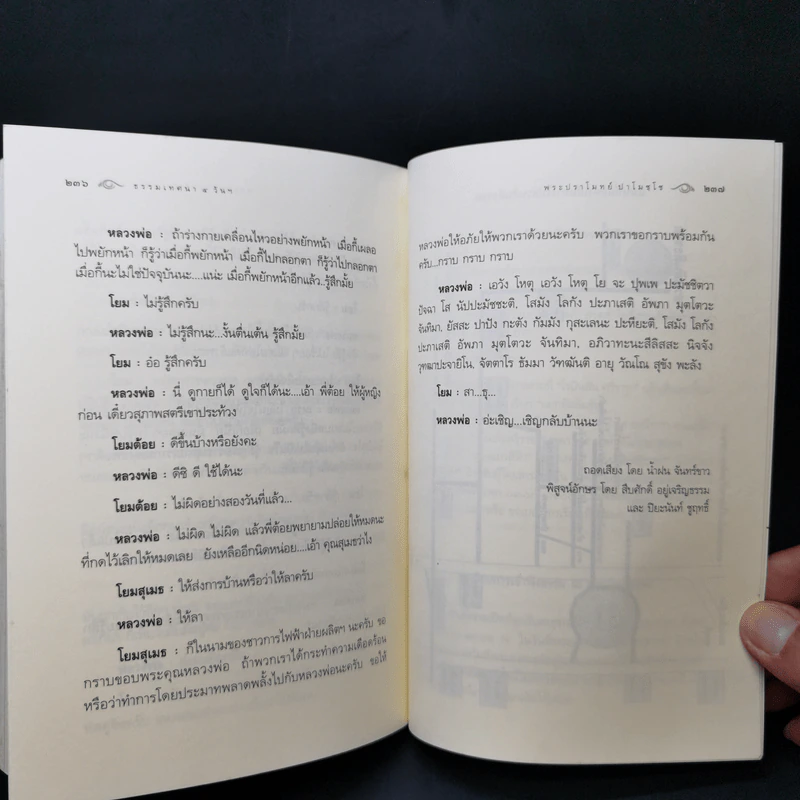 ๒๓๖ ธรรมเทศนา ๙ วันฯ
หลวงพ่อ : ถ้าร่างกายเคลื่อนไหวอย่างพยักหน้า เมื่อกี้เผลอ
ไปพยักหน้า ก็รู้ว่าเมื่อกี้พยักหน้า เมื่อกี้ไปกลอกตา ก็รู้ว่าไปกลอกตา
เมื่อกี้นะไม่ใช่ปัจจุบันนะ....แน่ะ เมื่อกี้พยักหน้าอีกแล้ว..รู้สึกมั้ย
โยม : ไม่รู้สึกครับ
หลวงพ่อ : ไม่รู้สึกนะ...งั้นตื่นเต้น รู้สึกมั้ย
โยม : อ๋อ รู้สึกครับ
หลวงพ่อ : นี่ ดูกายก็ได้ ดูใจก็ได้นะ....เอ้า พี่ต้อย ให้ผู้หญิง
ก่อน เดี๋ยวสุภาพสตรีเขาประท้วง
โยมต้อย : ดีขึ้นบ้างหรือยังคะ
หลวงพ่อ : ดีซิ ดี ใช้ได้นะ
โยมต้อย : ไม่ผิดอย่างสองวันที่แล้ว...
หลวงพ่อ : ไม่ผิด ไม่ผิด แล้วพี่ต้อยพยายามปล่อยให้หมดนะ
ที่กดไว้เลิกให้หมดเลย ยังเหลืออีกนิดหน่อย....เอ้า คุณสุเมธว่าไง
โยมสุเมธ : ให้ส่งการบ้านหรือว่าให้ลาครับ
หลวงพ่อ : ให้ลา
โยมสุเมธ : ก็ในนามของชาวการไฟฟ้าฝ่ายผลิตฯ นะครับ ขอ
กราบขอบพระคุณหลวงพ่อ ถ้าพวกเราได้กระทำความเดือดร้อน
หรือว่าทำการโดยประมาทพลาดพลั้งไปกับหลวงพ่อนะครับ ขอให้
พระปราโมทย์ ปาโมชฺโช ๒๓๗
หลวงพ่อให้อภัยให้พวกเราด้วยนะครับ พวกเราขอกราบพร้อมกัน
ครับ...กราบ กราบ กราบ
หลวงพ่อ : เอวัง โหตุ เอวัง โหตุ โย จะ ปุพเพ ปะมัชชิตวา
ปัจฉา โส นัปปะมัชชะติ, โสมัง โลกัง ปะภาเสติ อัพภา มุตโตวะ
จันทิมา, ยัสสะ ปาปัง กะตัง กัมมัง กุสะเลนะ ปะหียะติ, โสมัง โลกัง
ปะภาเสติ อัพภา มุตโตวะ จันทิมา, อภิวาทะนะสีลิสสะ นิจจัง
วุฑฒาปะจายิโน, จัตตาโร ธัมมา วัฑฒันติ อายุ วัณโณ สุขัง พะลัง
โยม : สา...ธุ...
หลวงพ่อ : อ่ะเชิญ...เชิญกลับบ้านนะ
ถอดเสียง โดย น้ำฝน จันทร์ขาว
พิสูจน์อักษร โดย สืบศักดิ์ อยู่เจริญธรรม
และ ปิยะนันท์ ชูฤทธิ์